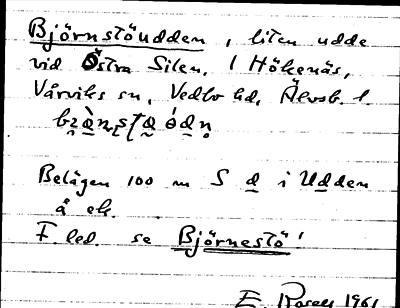 Björnstöudden, liten udde
vid Östra Silen, i Hökenäs,
Vårviks sn, Vedbo hd, Älvsb. l.
Belägen 100 m S d i Udden
å ek.
F. led. se Björnestö!
E. Rosell 1961